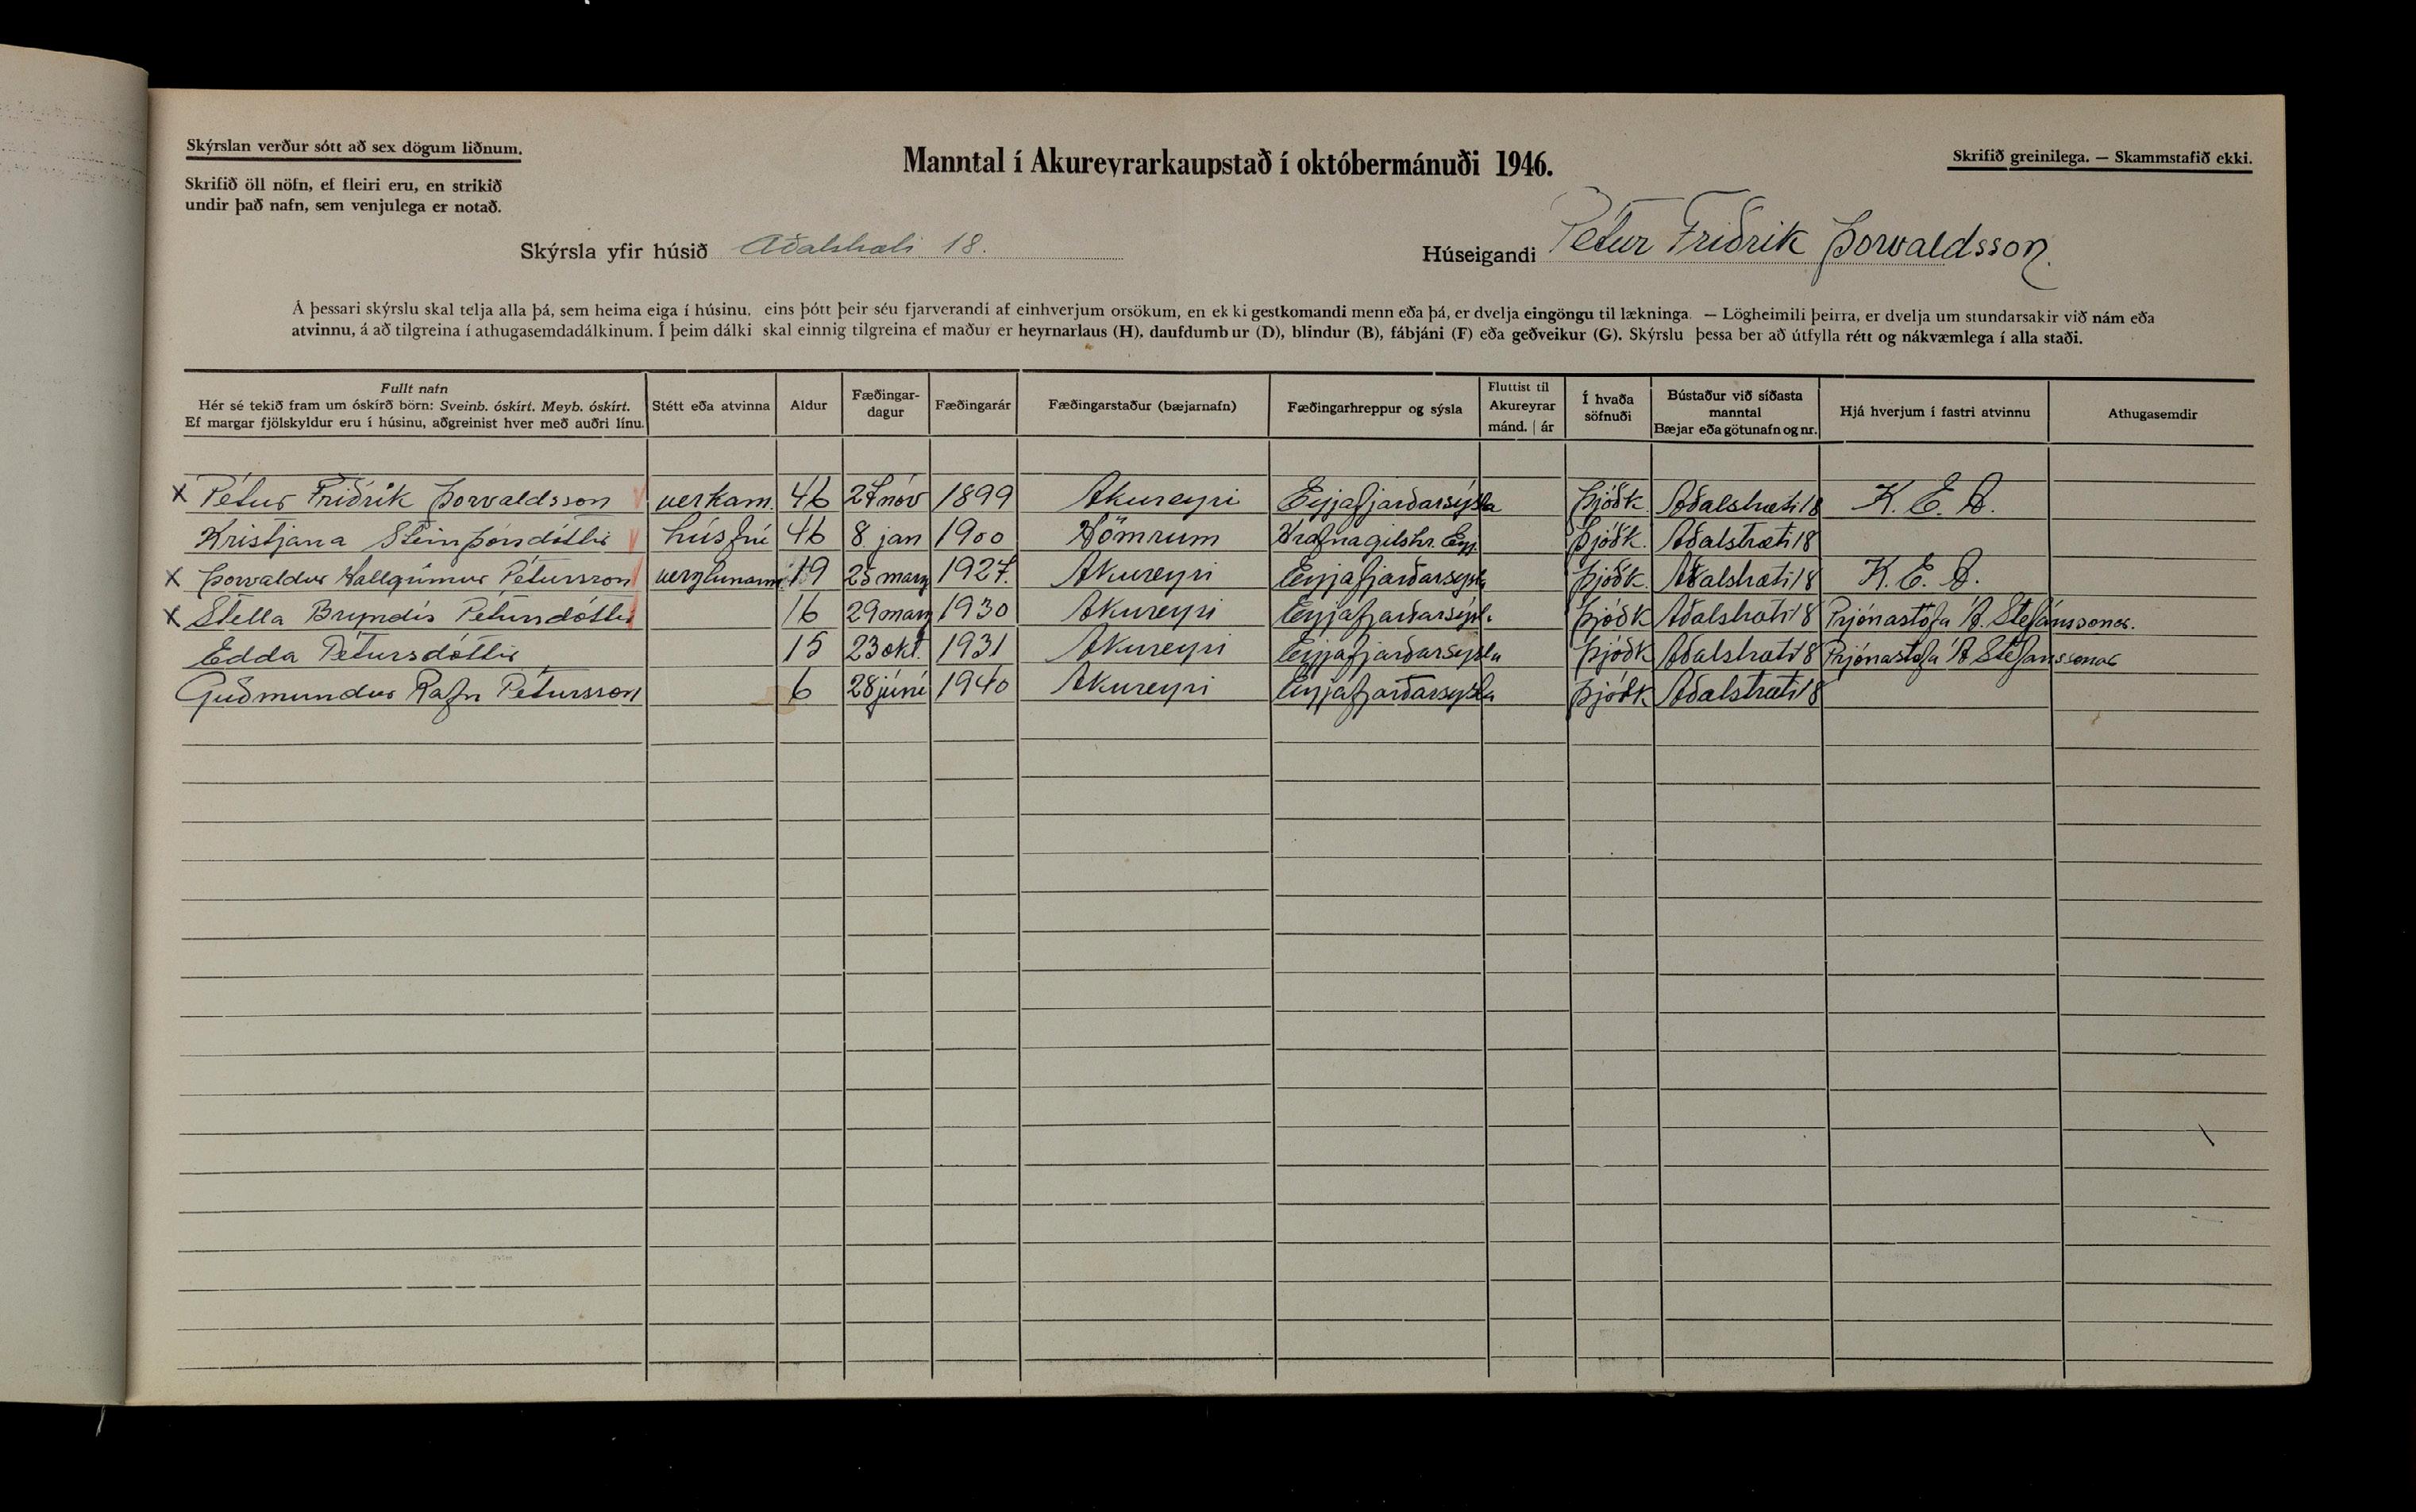 Skýrslan verður sótt að sex dögum liðnum.
Skrifið öll nöfn, ef fleiri eru, en strikið
undir það nafn, sem venjulega er notað.
Manntal í Akureyrarkaupstað í októbermánuði 1946.
Skrifið greinilega. — Skammstafið ekki.
Skýrsla yfir húsið Aðalstræti 18.
Húseigandi Pétur Friðrik Þorvaldsson.
Á þessari skýrslu skal telja alla þá, sem heima eiga í húsinu, eins þótt þeir séu fjarverandi af einhverjum orsökum, en ekki gestkomandi menn eða þá, er dvelja eingöngu til lækninga. — Lögheimili þeirra, er dvelja um stundarsakir við nám eða
atvinnu, á að tilgreina í athugasemdadálkinum. Í þeim dálki skal einnig tilgreina ef maður er heyrnarlaus (H), daufdumbur (D), blindur (B), fábjáni (F) eða geðveikur (G). Skýrslu þessa ber að útfylla rétt og nákvæmlega í alla staði.
Fullt nafn
Hér sé tekið fram um óskírð börn: Sveinb. óskírt. Meyb. óskírt.
Ef margar fjölskyldur eru í húsinu, aðgreinist hver með auðri línu.
Stétt eða atvinna
Aldur
Fæðingar-
dagur
Fæðingarár
Fæðingarstaður (bæjarnafn)
Fæðingarhreppur og sýsla
Fluttist til
Akureyrar
mánd. | ár
Í hvaða
söfnuði
Bústaður við síðasta
manntal
Bæjar eða götunafn og nr.
Hjá hverjum í fastri atvinnu
Athugasemdir
x Pétur Friðrik Þorvaldsson verkam. 46 27 nóv 1899 Akureyri Eyjafjarðarsýsla Þjóðk. Aðalstræti 18 K. E. A.
Kristjana Steinþórsdóttir húsfrú 46 8. jan 1900 Hömrum Hrafnagilshr. Eyj. Þjóðk. Aðalstræti 18
x Þorvaldur Hallgrímur Pétursson verzlunarm. 19 25 marz 1927. Akureyri Eyjafjarðarsýsla Þjóðk. Aðalstræti 18 K. E. A.
x Stella Bryndís Pétursdóttir 16 29 marz 1930 Akureyri Eyjafjarðarsýsl. Þjóðk Aðalstræti 18 Prjónastofa Á. Stefánssonar.
Edda Pétursdóttir 15 23 okt. 1931 Akureyri Eyjafjarðarsýsla Þjóðk Aðalstræti 18 Prjónastofa Á Stefánssonar
Guðmundur Rafn Pétursson 6 28 júní 1940 Akureyri Eyjafjarðarsýsla Þjóðk Aðalstræti 18